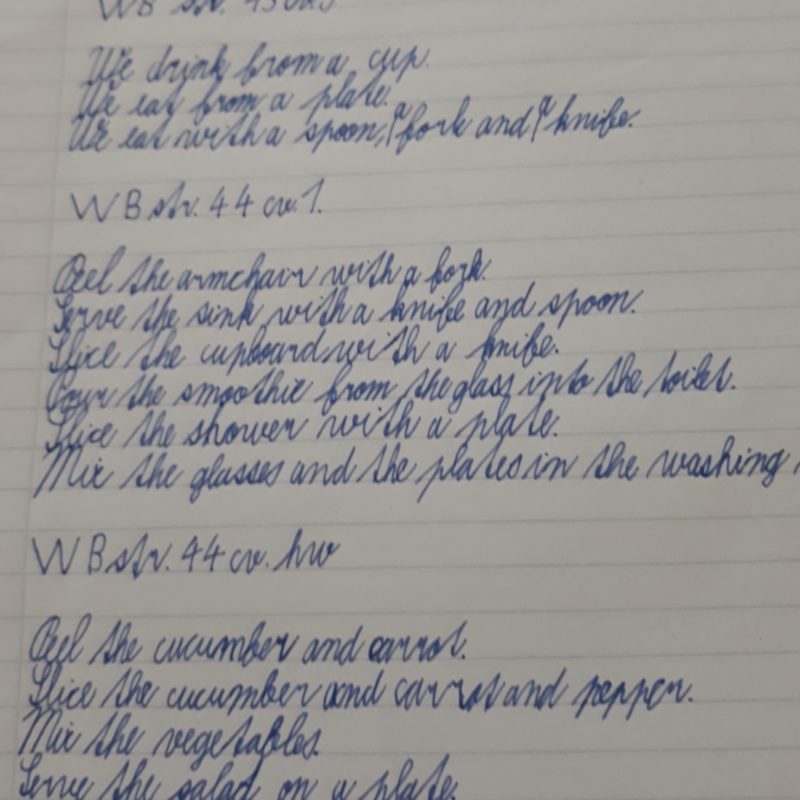 WB str. 43
We drink from a cup.
We eat from a plate.
We eat with a spoon, a fork and a knife.
WB str. 44 cv. 1.
Peel the armchair with a fork.
Serve the sink with a knife and spoon.
Slice the cupboard with a knife.
Pour the smoothie from the glass into the toilet.
Slice the shower with a plate.
Mix the glasses and the plates in the washing
WB str. 44 cv. hw
Peel the cucumber and carrot.
Slice the cucumber and carrot and pepper.
Mix the vegetables.
Serve the salad on a plate.